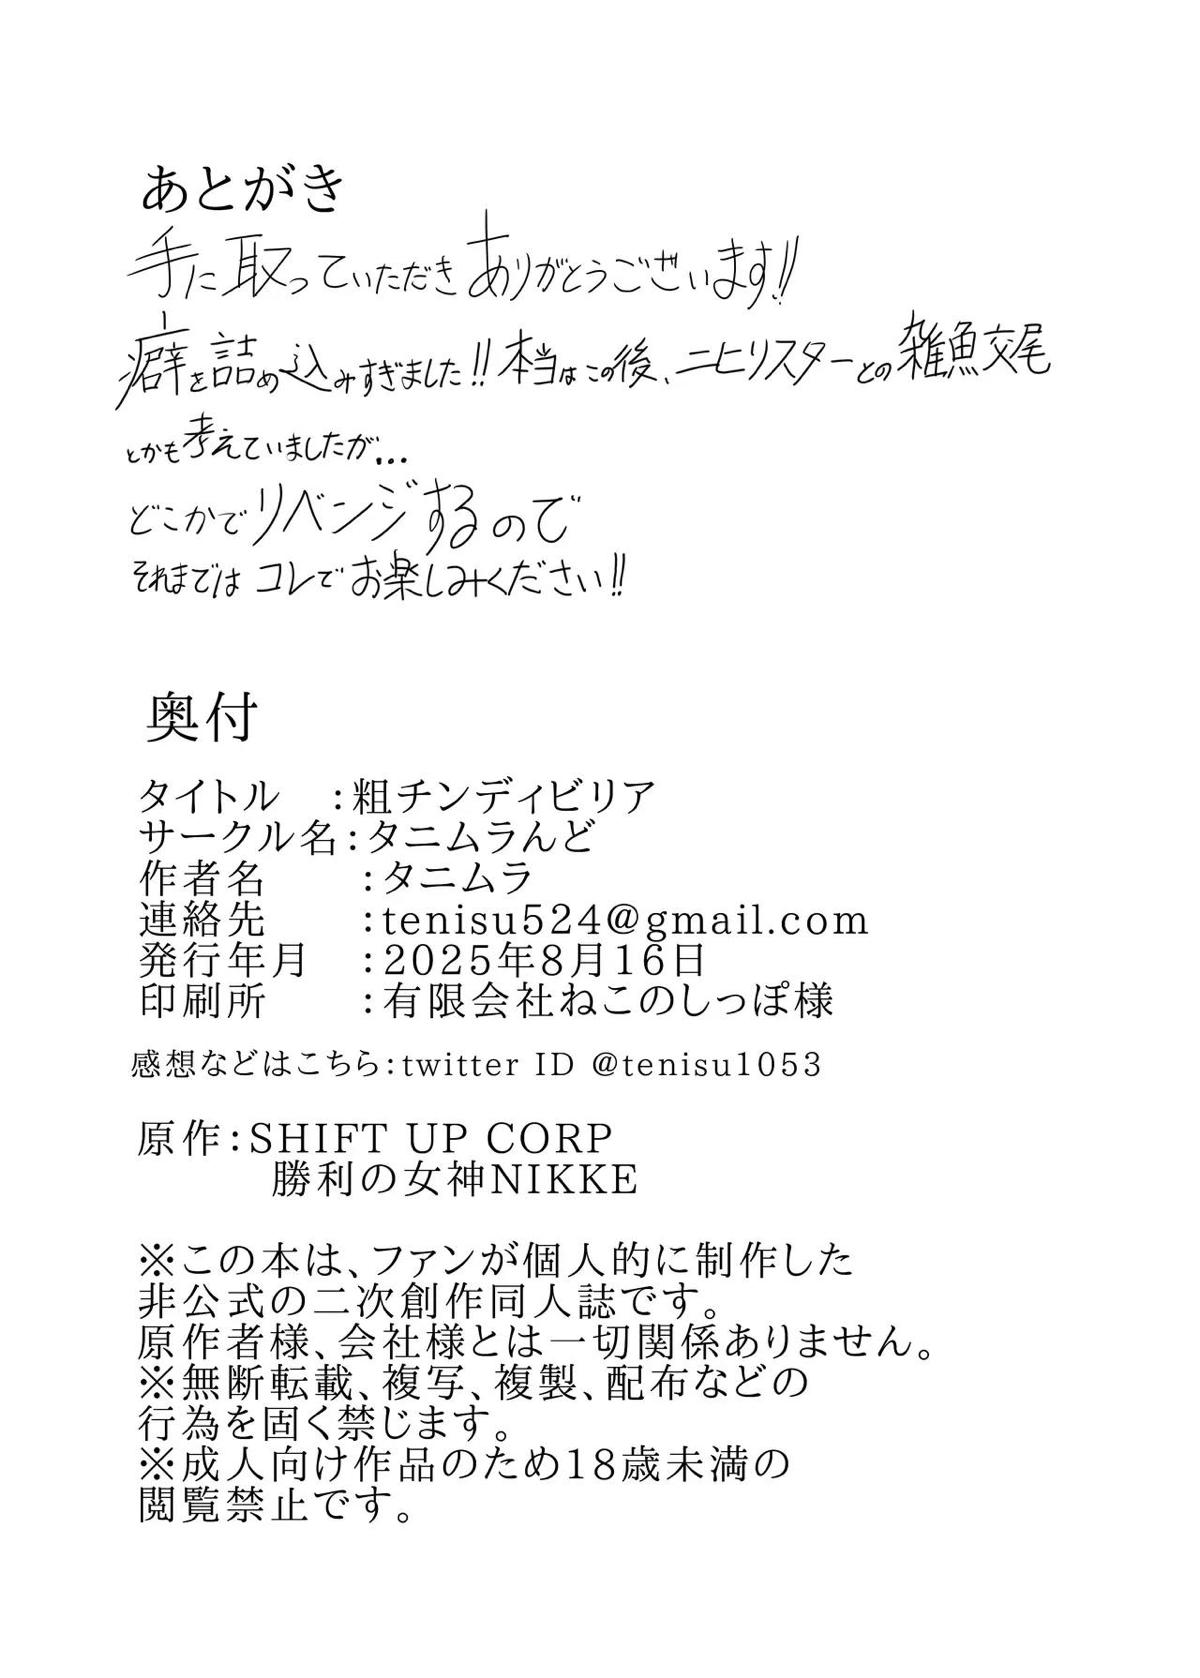 あとがき
手に取っていただきありがとうございます!!
癖を詰め込みすぎました!!本当はこの後、ニヒリスターとの雑魚交尾
とかも考えていましたが...
どこかでリベンジするので
それまではコレでお楽しみください!!
奥付
タイトル　:粗チンディビリア
サークル名:タニムラんど
作者名　　:タニムラ
連絡先　　:tenisu524@gmail.com
発行年月　:2025年8月16日
印刷所　　:有限会社ねこのしっぽ様
感想などはこちら:twitter ID @tenisu1053
原作:SHIFT UP CORP
勝利の女神NIKKE
※この本は、ファンが個人的に制作した
非公式の二次創作同人誌です。
原作者様、会社様とは一切関係ありません。
※無断転載、複写、複製、配布などの
行為を固く禁じます。
※成人向け作品のため18歳未満の
閲覧禁止です。